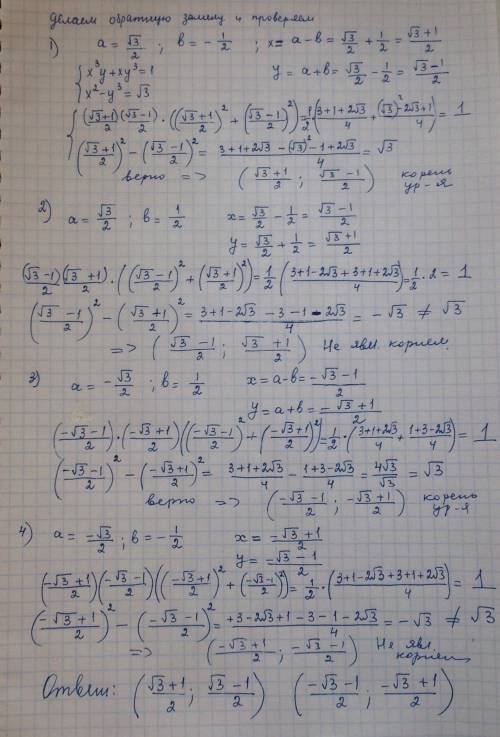 делаем обратную замену и проверяем
1) a = √3/2 ; в = -1/2 ; x = a-в = √3/2 + 1/2 = (√3+1)/2
{ x³y + xy³ = 1 y = a+в = √3/2 - 1/2 = (√3-1)/2
{ x² - y³ = √3
{ (√3+1)/2 (√3-1)/2 · (((√3+1)/2)² + ((√3-1)/2)²) = 1/2 · ((3+1+2√3)/4 + ((√3)²-2√3+1)/4) = 1
((√3+1)/2)² - ((√3-1)/2)² = (3+1+2√3-(√3)²-1+2√3)/4 = √3
верно => ((√3+1)/2 ; (√3-1)/2) корень ур-я
2) a = √3/2 ; в = 1/2 x = √3/2 - 1/2 = (√3-1)/2
y = √3/2 + 1/2 = (√3+1)/2
(√3-1)/2 (√3+1)/2 · (((√3-1)/2)² + ((√3+1)/2)²) = 1/2 · ((3+1-2√3+3+1+2√3)/4) = 1/2 · 2 = 1
((√3-1)/2)² - ((√3+1)/2)² = (3+1-2√3-3-1-2√3)/4 = -√3 ≠ √3
=> ((√3-1)/2 ; (√3+1)/2) Не явл. корнем
3) a = -√3/2 ; в = 1/2 x = a-в = (-√3-1)/2
y = a+в = (-√3+1)/2
((-√3-1)/2) · ((-√3+1)/2) (((-√3-1)/2)² + ((-√3+1)/2)²) = 1/2 · ((3+1+2√3)/4 + (1+3-2√3)/4) = 1
((-√3-1)/2)² - ((-√3+1)/2)² = (3+1+2√3)/4 - (1+3-2√3)/4 = 4√3/√3 = √3
верно => ((-√3-1)/2 ; (-√3+1)/2) корень ур-я
4) a = -√3/2 ; в = -1/2 x = (-√3+1)/2
y = (-√3-1)/2
((-√3+1)/2) ((-√3-1)/2) (((-√3+1)/2)² + ((-√3-1)/2)²) = 1/2 · ((3+1-2√3+3+1+2√3)/4) = 1
((-√3+1)/2)² - ((-√3-1)/2)² = (+3-2√3+1-3-1-2√3)/4 = -√3 ≠ √3
=> ((-√3+1)/2 ; (-√3-1)/2) Не явл. корнем
Ответ: ((√3+1)/2 ; (√3-1)/2) ((-√3-1)/2 ; (-√3+1)/2)